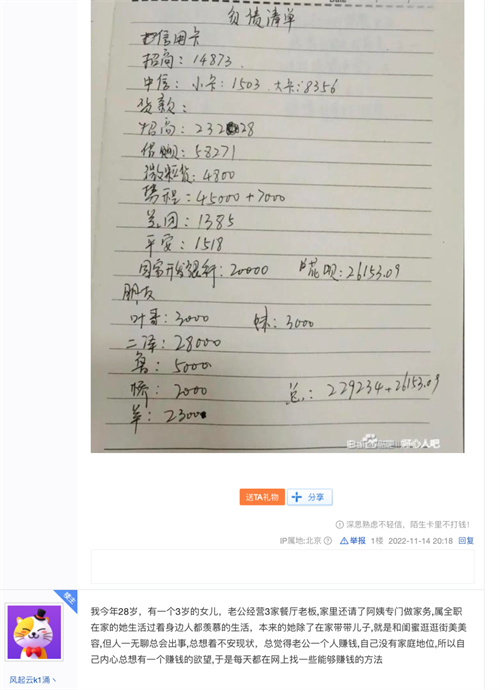 负债清单
信用卡
招商：14873
中信：小卡：1503 、大卡：8356
贷款：
招商：232 28
借呗：58271
微粒贷：4800
携程：45000+7000
美团：1385
平安：1518
国家开发银行：20000 花呗：26153.09
朋友
叶哥：3000 妹：3000
二泽：28000
鲁：5000
桥：2000
羊：2300
总：229234+26153.09
送TA礼物 分享
深思熟虑不轻信，陌生卡里不打钱！
IP属地:北京 举报 1楼 2022-11-14 20:18 回复
楼主
我今年28岁，有一个3岁的女儿，老公经营3家餐厅老板,家里还请了阿姨专门做家务,属全职
在家的她生活过着身边人都羡慕的生活，本来的她除了在家带带儿子,就是和闺蜜逛逛街美美
容,但人一无聊总会出事,总想着不安现状，总觉得老公一个人赚钱,自己没有家庭地位,所以自
己内心总想有一个赚钱的欲望,于是每天都在网上找一些能够赚钱的方法
风起云k1涌